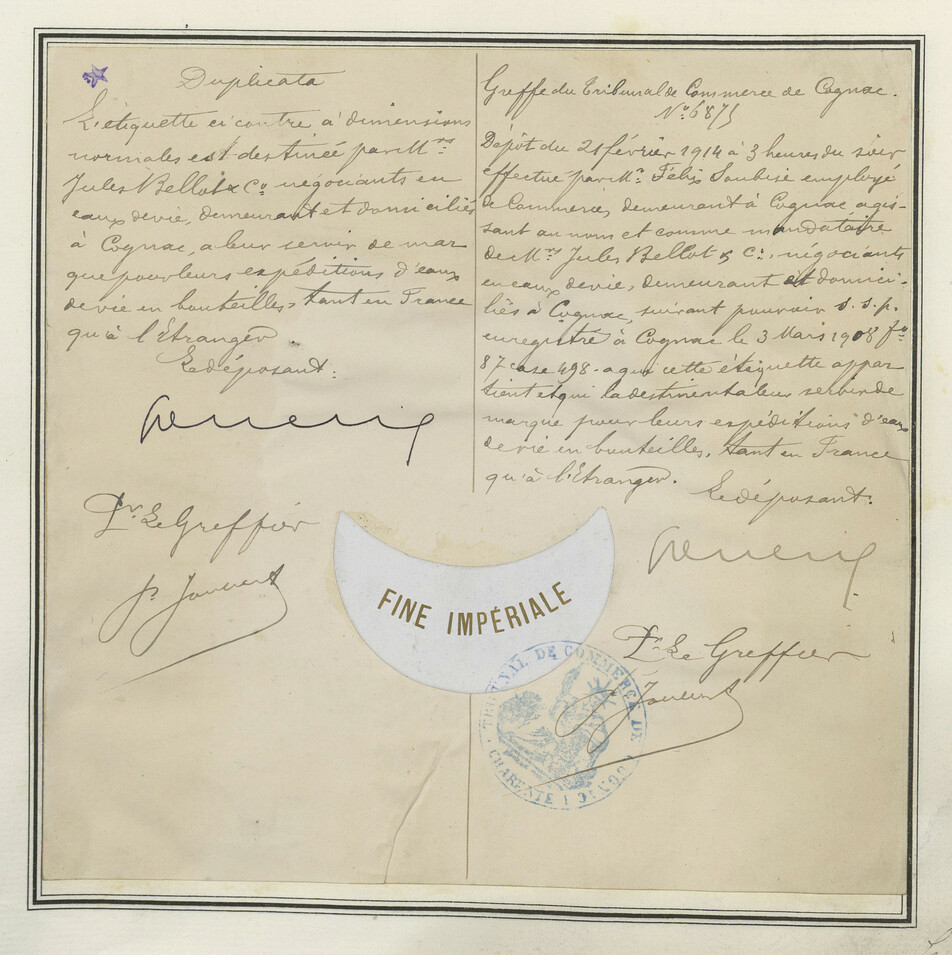 Duplicata
L'étiquette ci contre à dimensions
normales est destinée par Mrs
Jules Bellot & Co négociants en
eaux de vie, demeurant et domiciliés
à Cognac, a leur servir de mar
que pour leurs expéditions d'eaux
de vie en bouteilles, tant en France
qu'à l'Etranger.
Le déposant:
Pr. Le Greffier
Greffe du Tribunal de Commerce de Cognac.
No 6875
Dépôt du 21 février 1914 à 3 heures du soir
effectué par Mr. Félix Soubise employé
de Commerce, demeurant à Cognac agis-
sant au nom et comme mandataire
de Mrs Jules Bellot & Co. négociants
en eaux de vie, demeurant et domici-
liés à Cognac, suivant pouvoir s.s.p.
enregistré à Cognac le 3 Mars 1908 fo
87 case 498 - à qui cette étiquette appar
tient et qui la destinent a leur servir de
marque pour leurs expéditions d'eaux
de vie en bouteilles, tant en France
qu'à l'Etranger.
Le déposant:
FINE IMPÉRIALE
Pr Le Greffier
TRIBUNAL DE COMMERCE DE COGNAC
CHARENTE